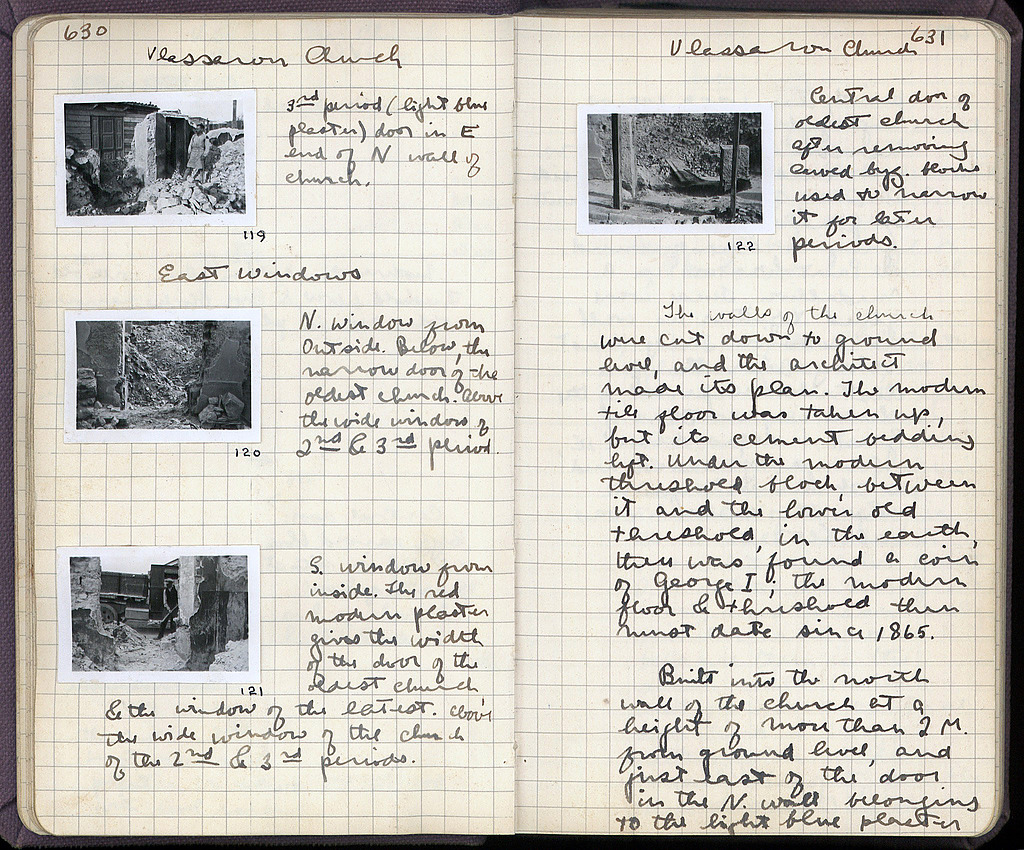 630
Vlassarou Church
3rd period (light blue
plaster) door in E
end of N wall of
church.
119
East Windows
N. window from
Outside. Below, the
narrow door of the
oldest church. Above
the wide window of
2nd & 3rd period.
120
S. window from
inside. The red
modern plaster
gives the width
of the door of the
oldest church
121
& the window of the latest. Above
the wide window of the church
of the 2nd & 3rd periods.
631
Vlassarou Church
Central door of
oldest church
after removing
carved byz. blocks
used to narrow
it for later
periods.
122
The walls of the church
were cut down to ground
level, and the architect
made its plan. The modern
tile floor was taken up,
but its cement bedding
left. Under the modern
threshold block, between
it and the lower old
threshold, in the earth,
there was found a coin
of George I; the modern
floor & threshold then
must date since 1865.
Built into the north
wall of the church at a
height of more than 2 M.
from ground level, and
just east of the door
in the N. wall belonging
to the light blue plaster